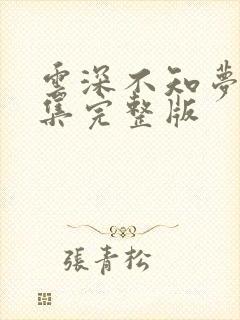 雲深不知夢
集完整版
張青松